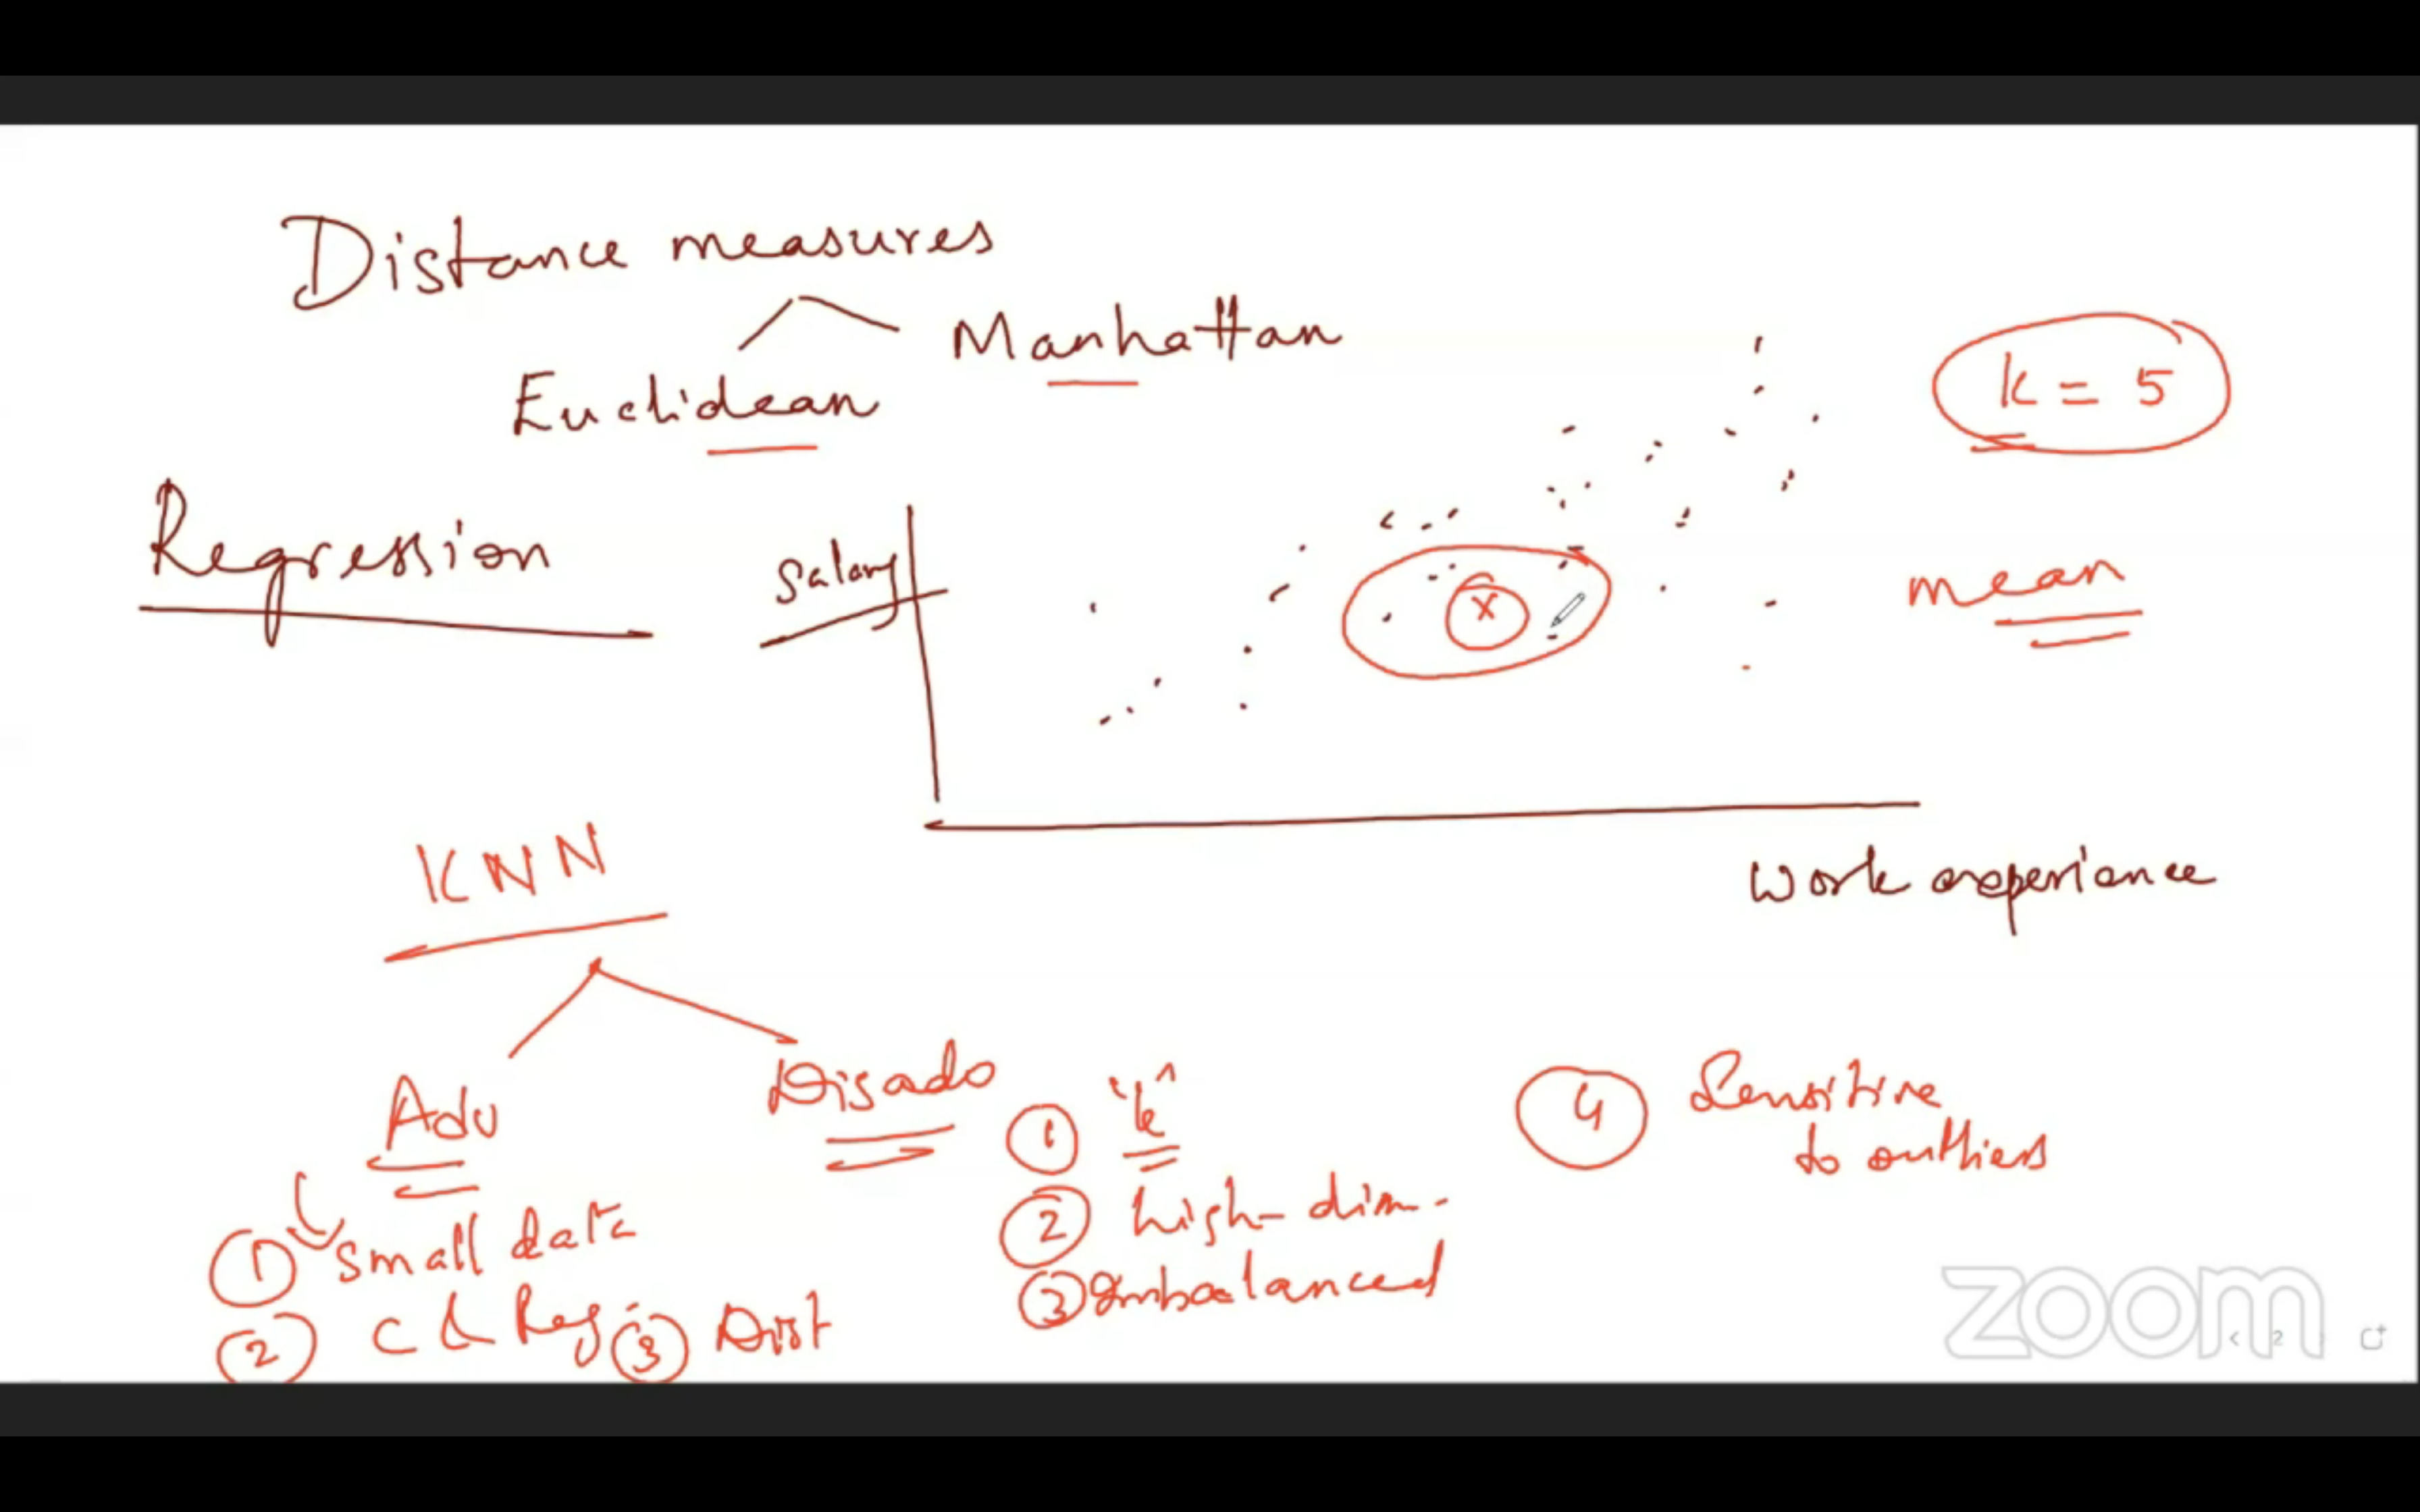 Distance measures
Manhattan
Euclidean
k = 5
Regression
Salary
x
mean
Work experience
KNN
Adv
Disadv
① Small data
② C & Reg ③ Dist
① 'k'
② high-dim.
③ Imbalanced
④ Sensitive
to outliers
zoom
< 2